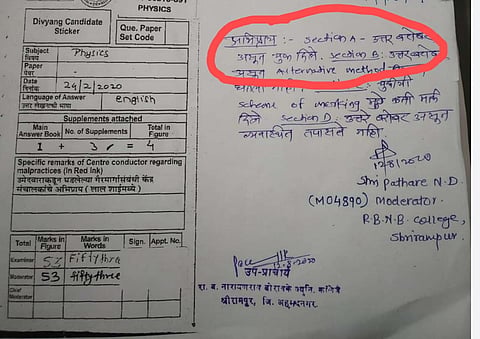 PHYSICS
Divyang Candidate
Sticker
Que. Paper
Set Code
Subject
विषय
Physics
Paper
पेपर
Date
दिनांक
24/2/2020
Language of Answer
उत्तर लेखनाची भाषा
English
Supplements attached
Main
Answer Book
No. of Supplements
Total in
Figure
1 + 3 = 4
Specific remarks of Centre conductor regarding
malpractices (In Red Ink)
उमेदवाराकडून घडलेल्या गैरमार्गासंबंधी केंद्र
संचालकांचे अभिप्राय (लाल शाईमध्ये)
Total
Marks in
Figure
Marks in
Words
Sign.
Appt. No.
Examiner
53
Fiftythree
Moderator
53
fiftythree
Chief
Moderator
अभिप्राय :- section A - उत्तर बरोबर
असून गुण दिले. section B: उत्तर बरोबर
असून Alternative method
scheme of marking मुळे कमी मार्क
दिले section D: उत्तरे बरोबर असून
व्यवस्थित तपासले नाही.
12/8/2020
Shri Pathare N.D.
(M04890) Moderator.
R.B.N.B. College,
Shrirampur.
12-8-2020
उप-प्राचार्य
रा. ब. नारायणराव बोरावके ज्युनि. कॉलेज
श्रीरामपूर, जि. अहमदनगर